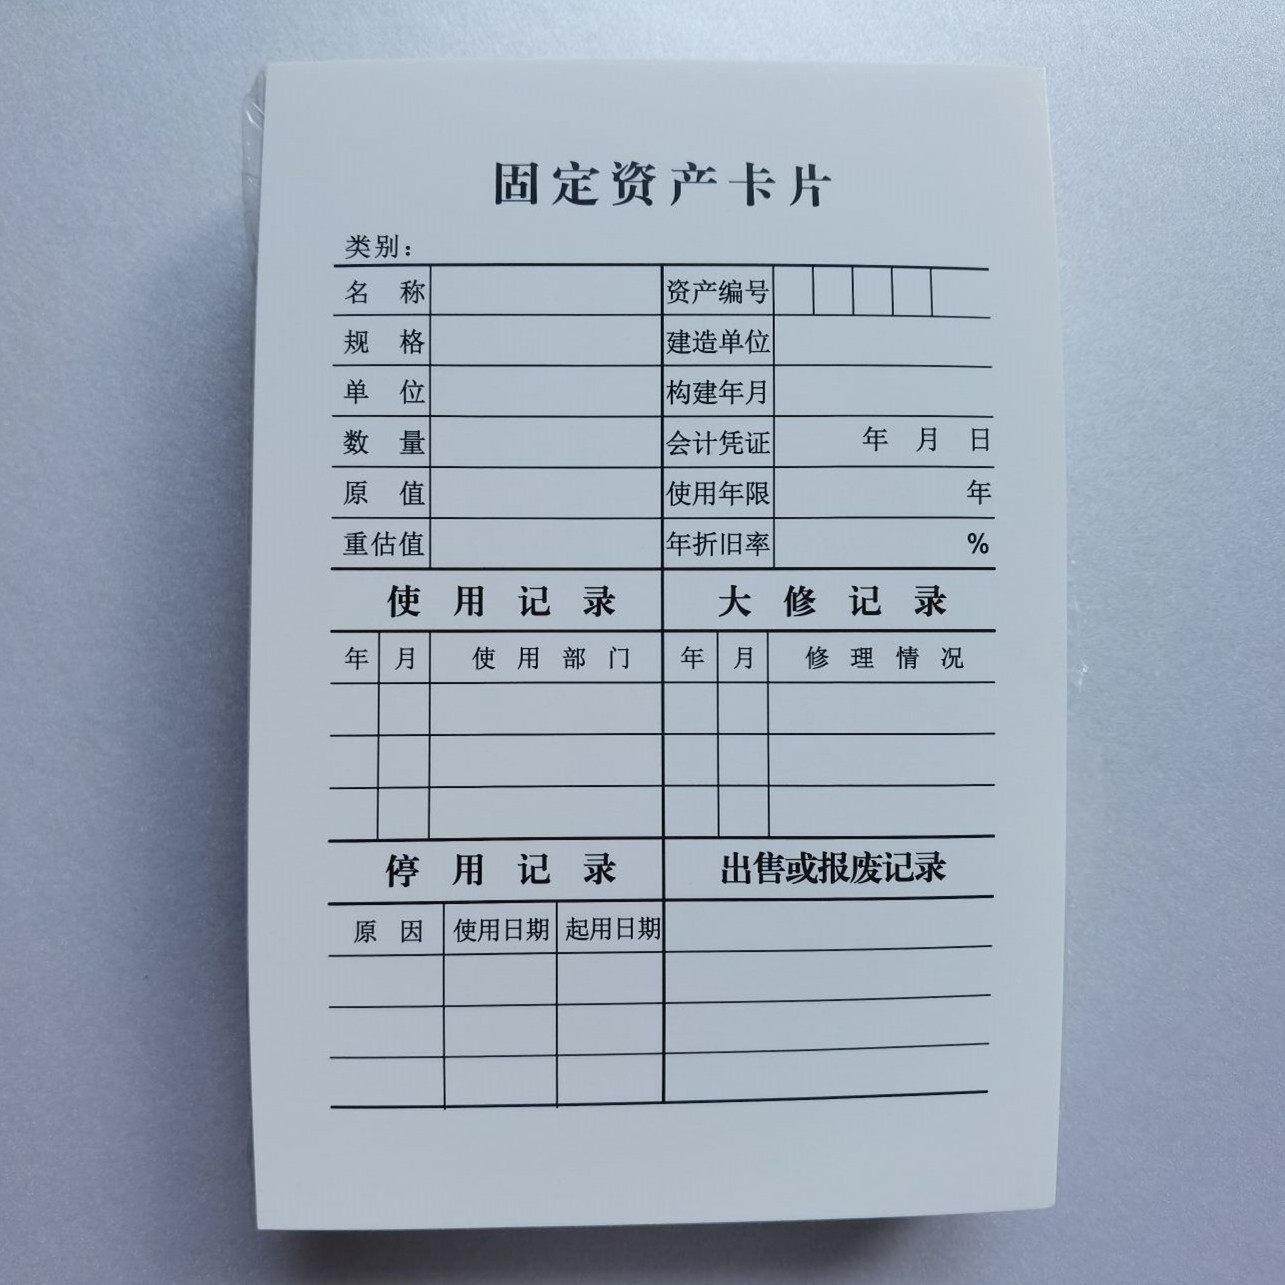 固定资产卡片
类别：
名 称 资产编号
规 格 建造单位
单 位 构建年月
数 量 会计凭证 年 月 日
原 值 使用年限 年
重估值 年折旧率 %
使 用 记 录 大 修 记 录
年 月 使 用 部 门 年 月 修 理 情 况
停 用 记 录 出售或报废记录
原 因 使用日期 起用日期